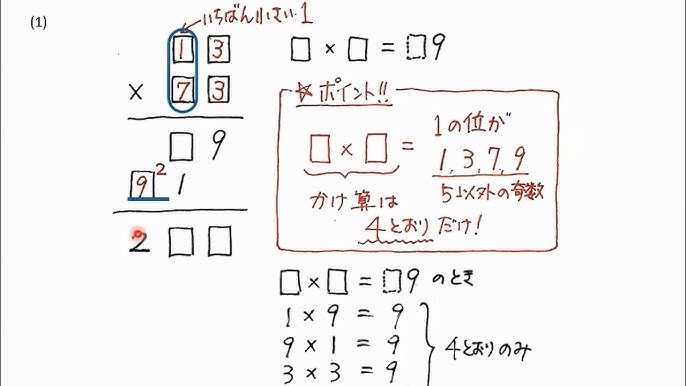 (1)
いちばん小さい1
1 3
× 7 3
□ 9
9 2 1
2 □ □
□ × □ = □9
☆ポイント!!
□ × □ = 1の位が
1, 3, 7, 9
かけ算は 5以外の奇数
4とおりだけ!
□ × □ = □9 のとき
1 × 9 = 9
9 × 1 = 9 4とおりのみ
3 × 3 = 9